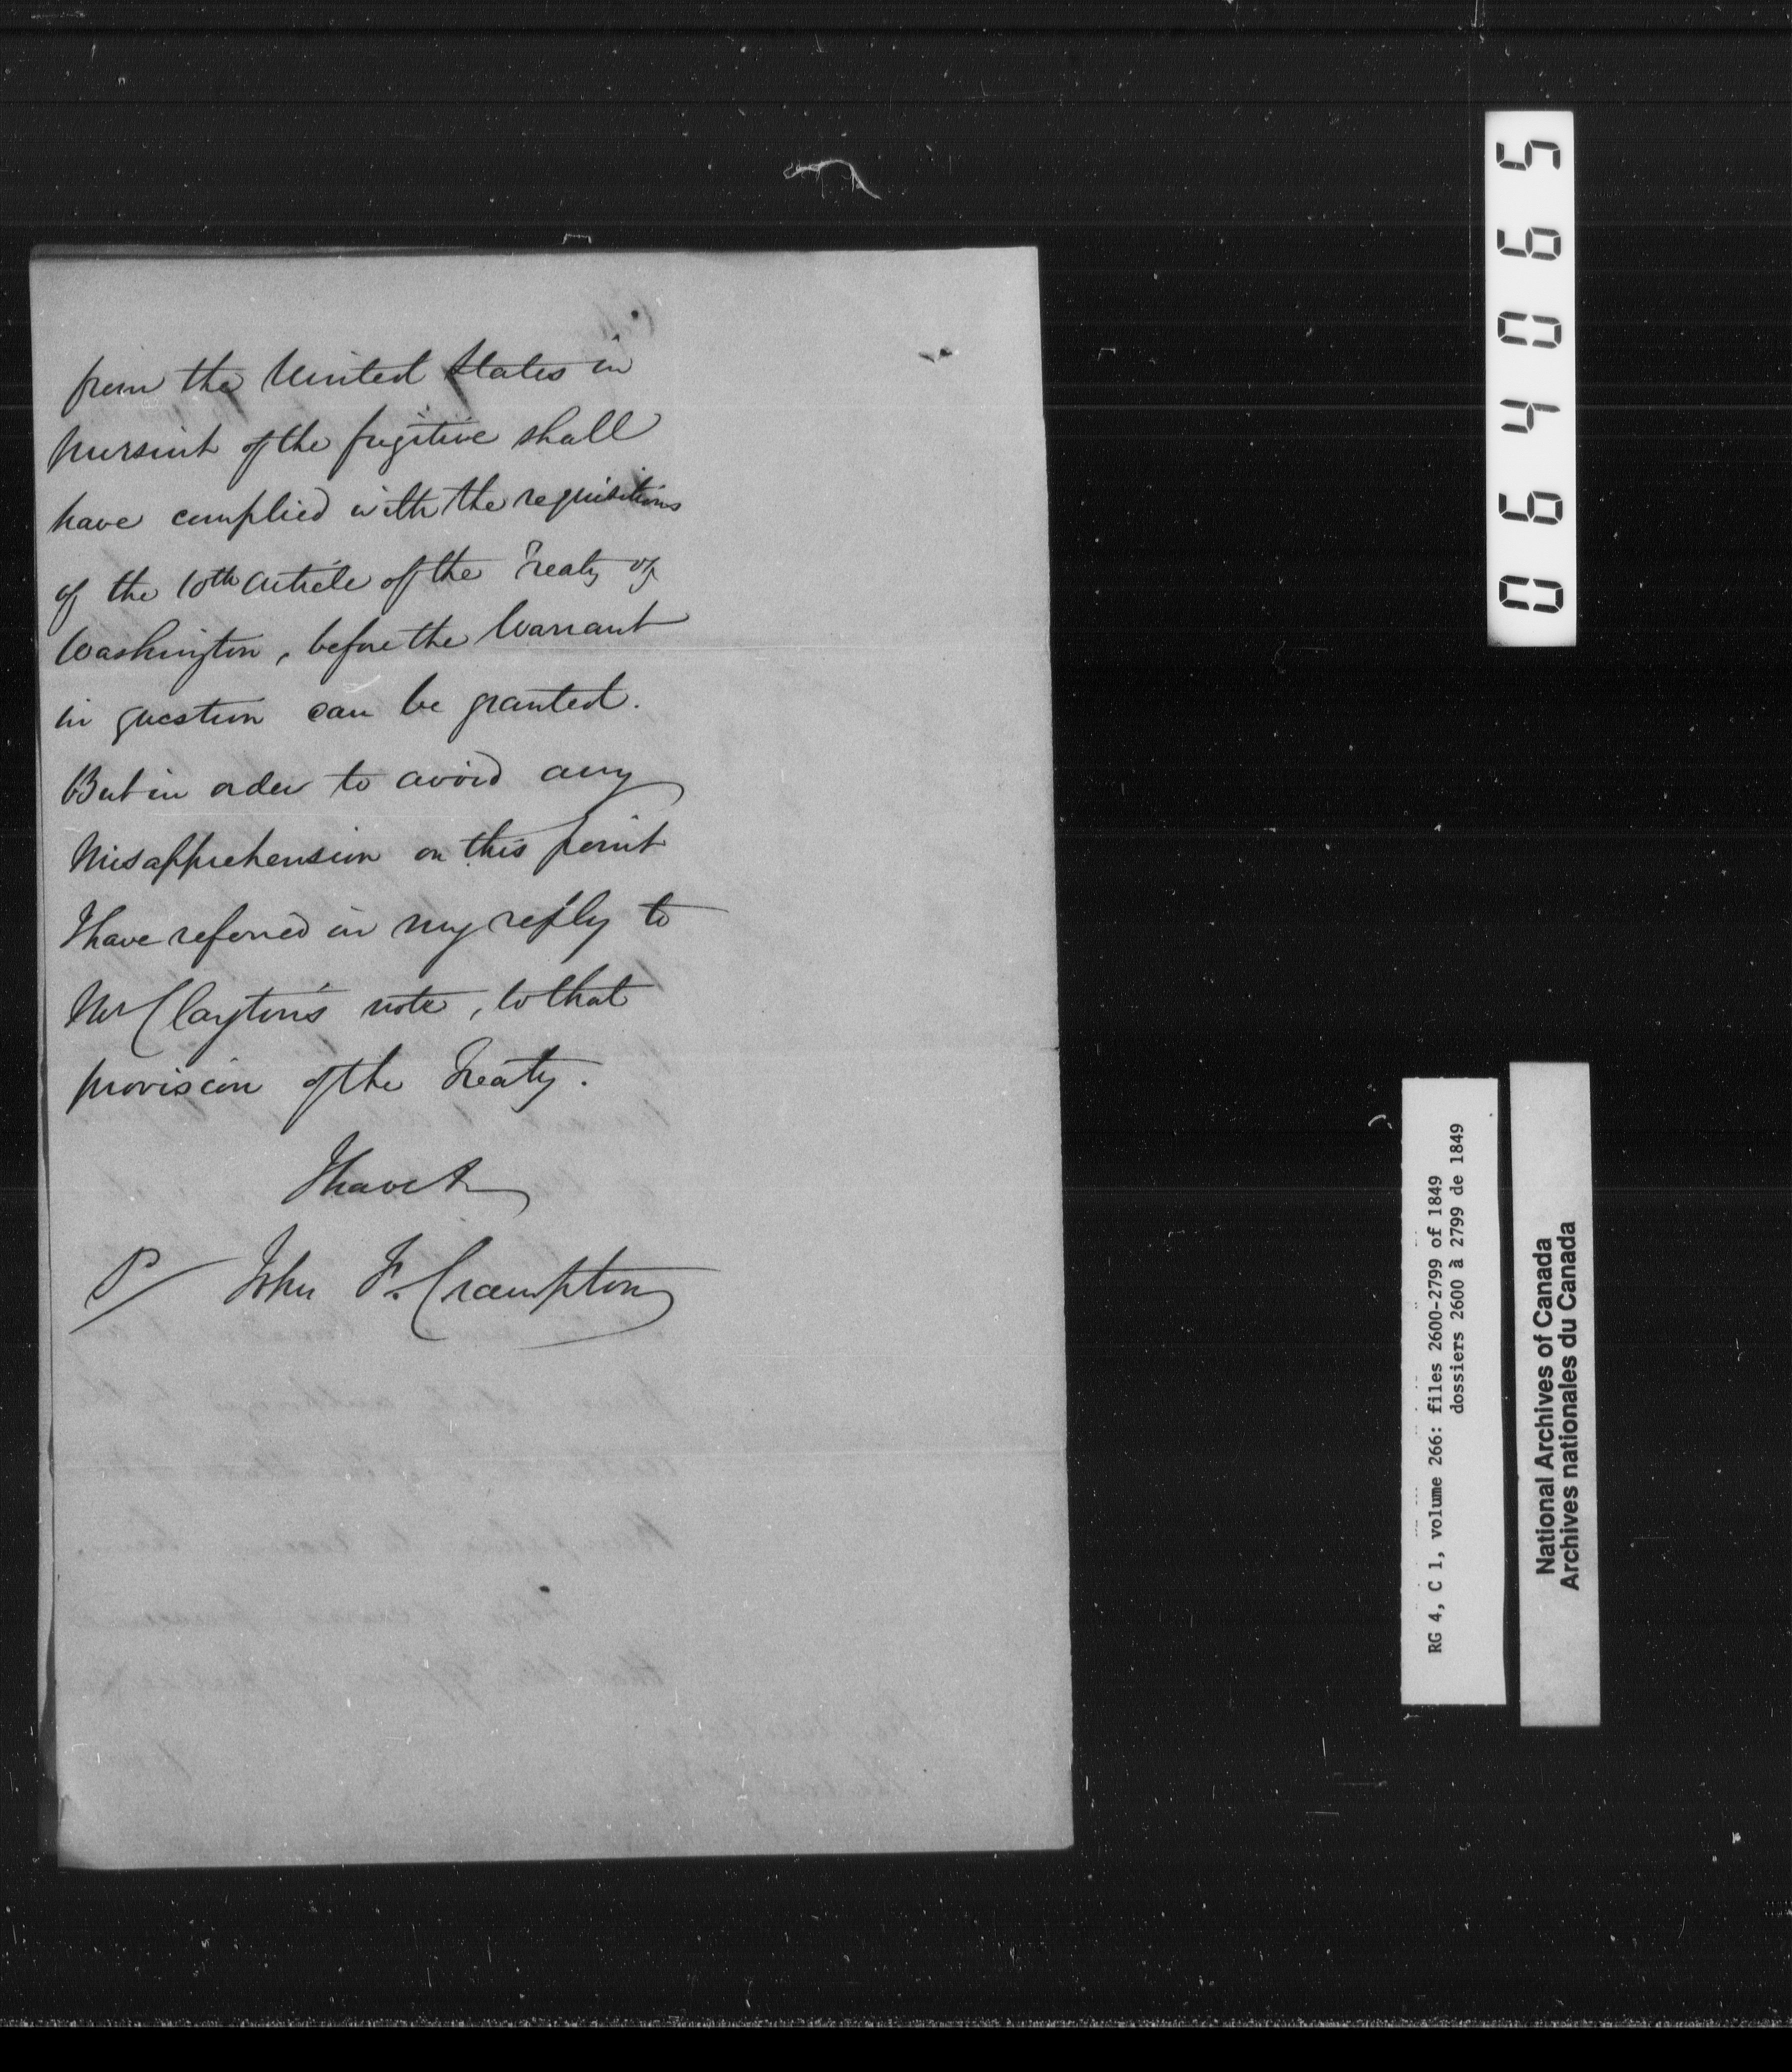 from the United States in
pursuit of the fugitive shall
have complied with the requisitions
of the 10th Article of the Treaty of
Washington, before the Warrant
in question can be granted.
But in order to avoid any
Misapprehension on this point
I have referred in my reply to
Mr Clayton's note, to that
provision of the Treaty.
I have &
John F. Crampton
064065
RG 4, C 1, volume 266: files 2600-2799 of 1849
dossiers 2600 à 2799 de 1849
National Archives of Canada
Archives nationales du Canada